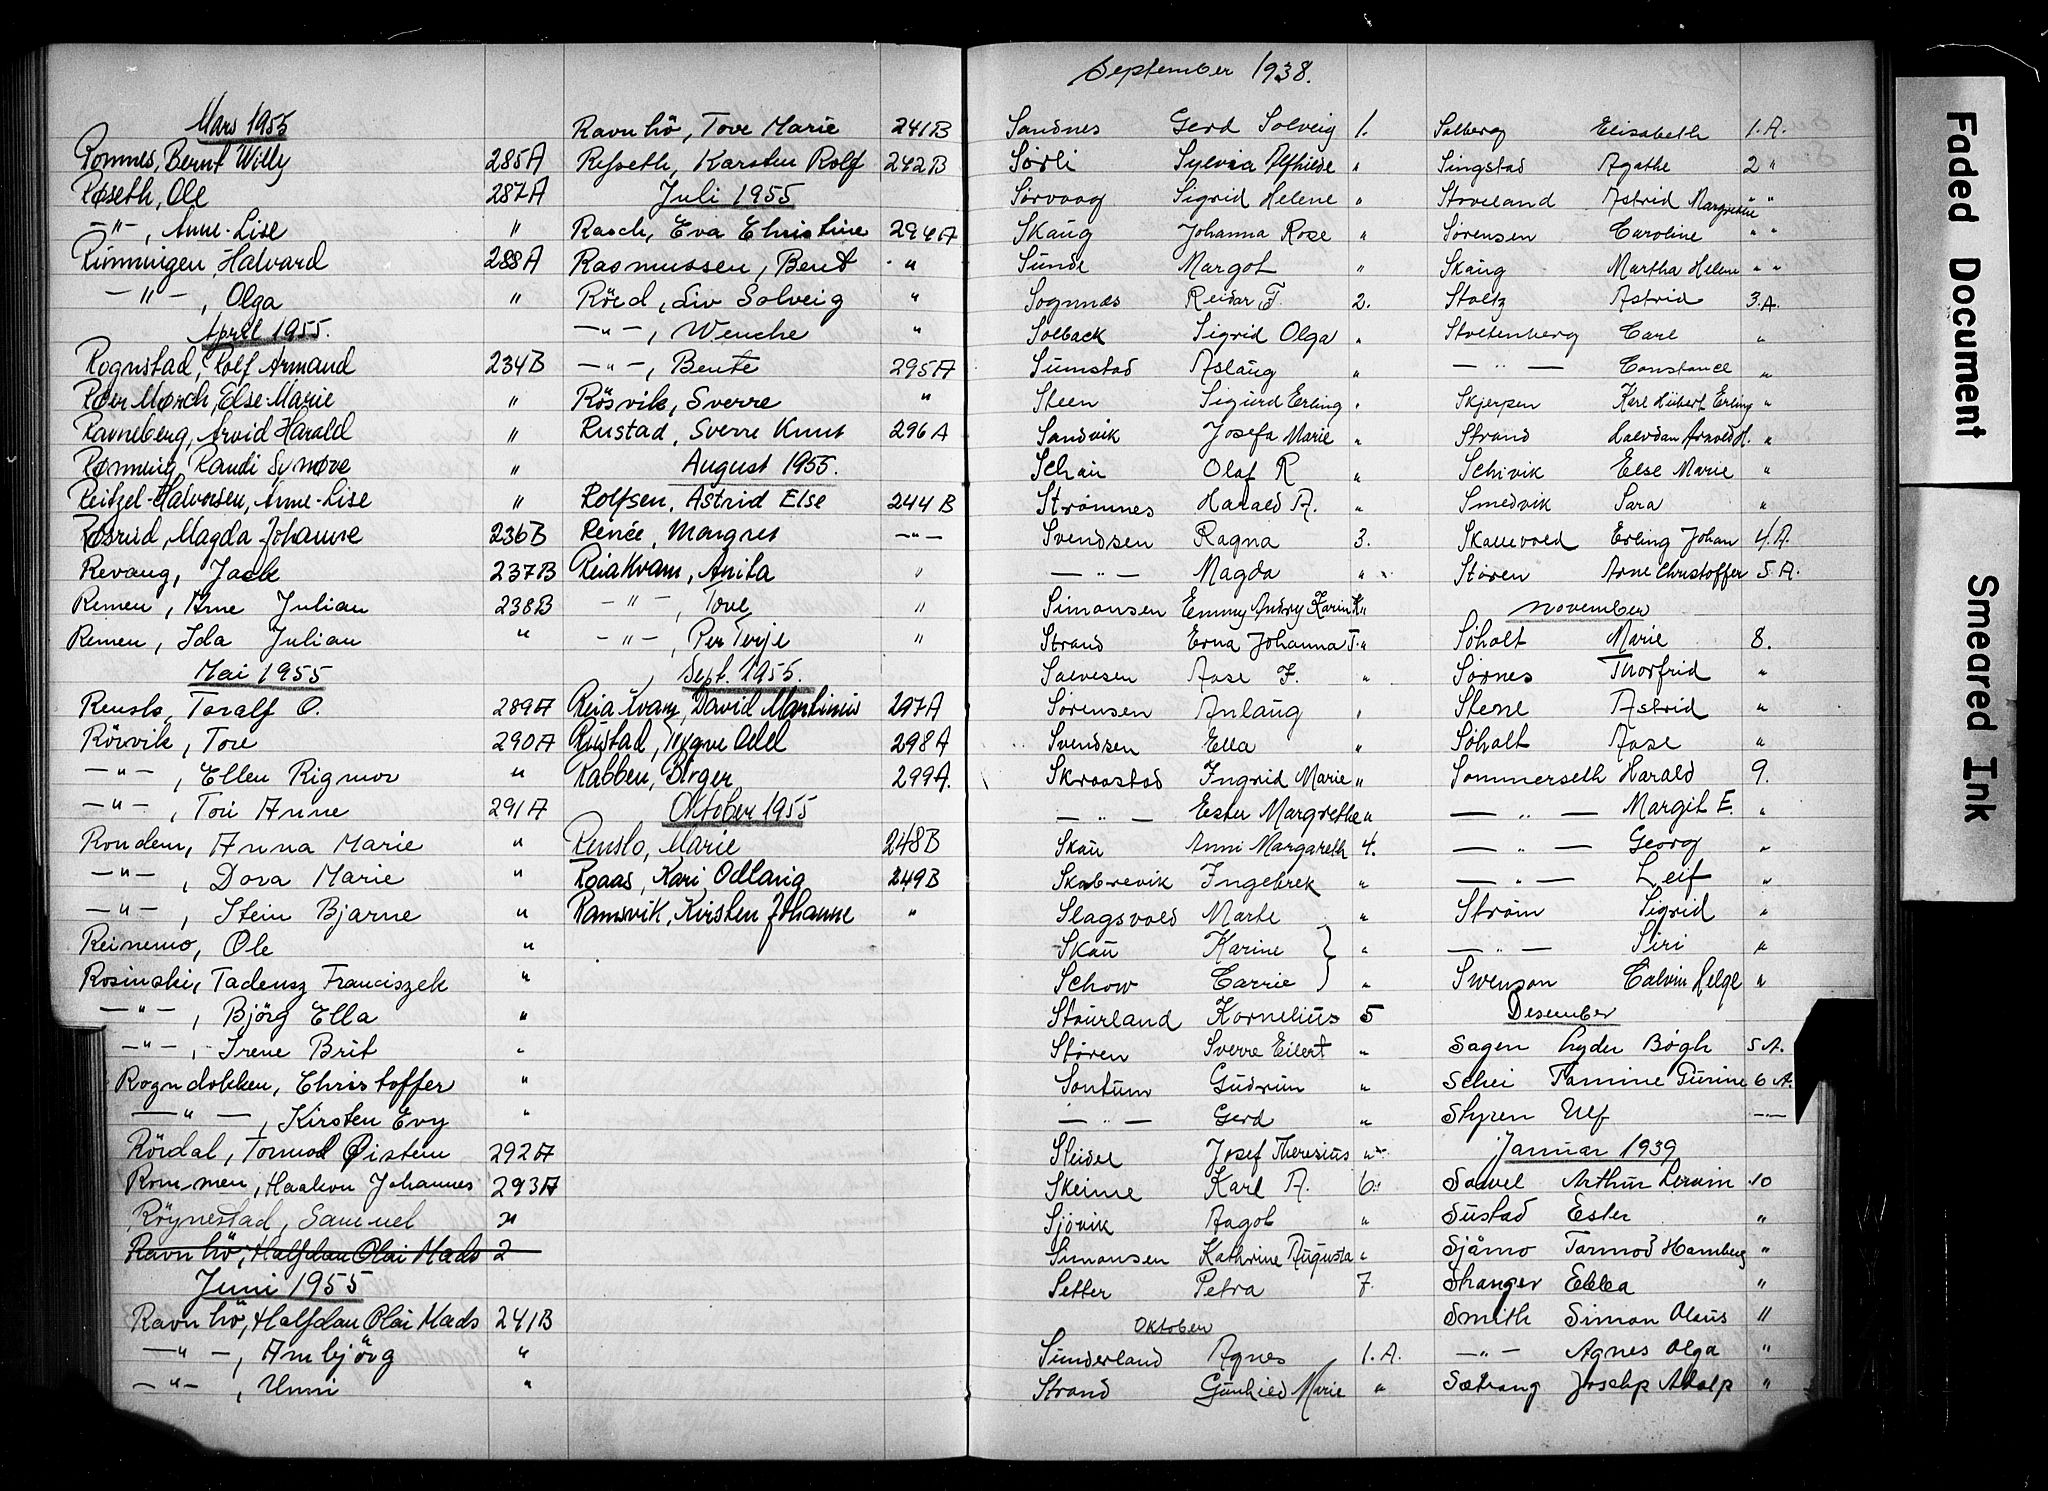 Mars 1955
Romnes, Bernt Willy 285A
Røseth, Ole 287A
—"—, Anne-Lise "
Rimmingen, Halvard 288A
—"—, Olga "
April 1955.
Rognstad, Rolf Armand 234B
Røer Mørch, Else-Marie "
Ravneberg, Arvid Harald "
Rønning, Randi Synøve "
Reitzel-Halvorsen, Anne-Lise "
Røsrud, Magda Johanne 236B
Revaug, Jack 237B
Remen, Arne Julian 238B
Remen, Ida Julian "
Mai 1955
Renslo, Toralf O. 289A
Rörvik, Tore 290A
—"—, Ellen Rigmor "
—"—, Tori Anne 291A
Rondem, Anna Marie "
—"—, Dova Marie "
—"—, Stein Bjarne "
Reinemo, Ole "
Rosinski, Tadeusz Franciszek "
—"—, Björg Ella "
—"—, Irene Brit "
Rogndokken, Christoffer "
—"—, Kirsten Evy "
Rördal, Tormod Øistein 292A
Rommen, Haakon Johannes 293A
Röynestad, Samuel "
Ravnhö, Halfdan Olai Mads 2
Juni 1955
Ravnhö, Halfdan Olai Mads 241B
—"—, Ambjörg "
—"—, Unni "
Ravnhö, Tove Marie 241B
Rysseth, Karsten Rolf 242B
Juli 1955
Rasch, Eva Christine 294A
Rasmussen, Bent "
Röed, Liv Solveig "
—"—, Wenche "
—"—, Bente 295A
Rösvik, Sverre "
Rustad, Sverre Knut 296A
August 1955.
Rolfsen, Astrid Else 244B
Renée, Margret —"—
Reiakvam, Anita "
—"—, Tove "
—"—, Per Terje "
Sept. 1955.
Reiakvam, David Martinius 297A
Rustad, Trygve Odd 298A
Rabben, Birger 299A.
Oktober 1955
Renslo, Marie 248B
Roaas, Kari Odlaug 249B
Ramsvik, Kirsten Johanne "
September 1938.
Sandnes Gerd Solveig 1.
Sørli Sylvia Alfhilde "
Sørvaag Sigrid Helene "
Skaug Johanna Rose "
Sunde Margot "
Sognnæs Reidar F. 2.
Solback Sigrid Olga "
Sumstad Aslaug "
Steen Sigurd Erling "
Sandvik Josefa Marie "
Schau Olaf R "
Strømnes Harald A. "
Svendsen Ragna 3.
—"— Magda "
Simonsen Emmy Audny Karin K "
Strand Erna Johanna T. "
Salvesen Aase F. "
Sørensen Anlaug "
Svendsen Ella "
Skraastad Ingrid Marie "
—"— Ester Margrethe "
Skau Anni Margareth 4.
Skabrevik Ingebrek "
Slagsvold Marte "
Skau Karine "
Schow Carrie "
Staurland Kornelius 5
Støren Sverre Eilert "
Sontum Gudrun "
—"— Gerd "
Sleidel Josef Theresius "
Skeime Karl A. 6.
Sjövik Aagot "
Simonsen Kathrine Augusta "
Setter Petra 7.
Oktober
Sunderland Agnes 1.A.
Strand Gunhild Marie "
Solberg Elisabeth 1.A.
Singstad Agathe 2 "
Straeland Astrid Margrethe "
Sørensen Caroline " "
Skaug Martha Helene " "
Stoltz Astrid 3.A.
Stoltenberg Carl "
—"— Constance "
Skjerpen Karl Hübert Erling "
Strand Halvdan Arnold H. "
Schivik Else Marie "
Smedvik Sara "
Skallevold Erling Johan 4.A.
Støren Arne Christoffer 5.A.
November
Søholt Marie 8.
Sørnes Thorfrid "
Stene Astrid "
Søholt Aase "
Sommerseth Harald 9.
—"— Margit E. "
—"— Georg "
—"— Leif "
Strøm Sigrid "
—"— Siri "
Swenson Calvin Helge "
Desember
Sagen Lyder Bøgh 5 A.
Schei Tamine Gurine 6 A.
Styren Ulf —"—
Januar 1939
Saavel Arthur Lervin 10
Sustad Ester "
Sjåmo Tormod Hamberg "
Stranger Ella "
Smith Simon Olaus 11
—"— Agnes Olga "
Sætrang Joseph Adolp "
Faded Document
Smeared Ink